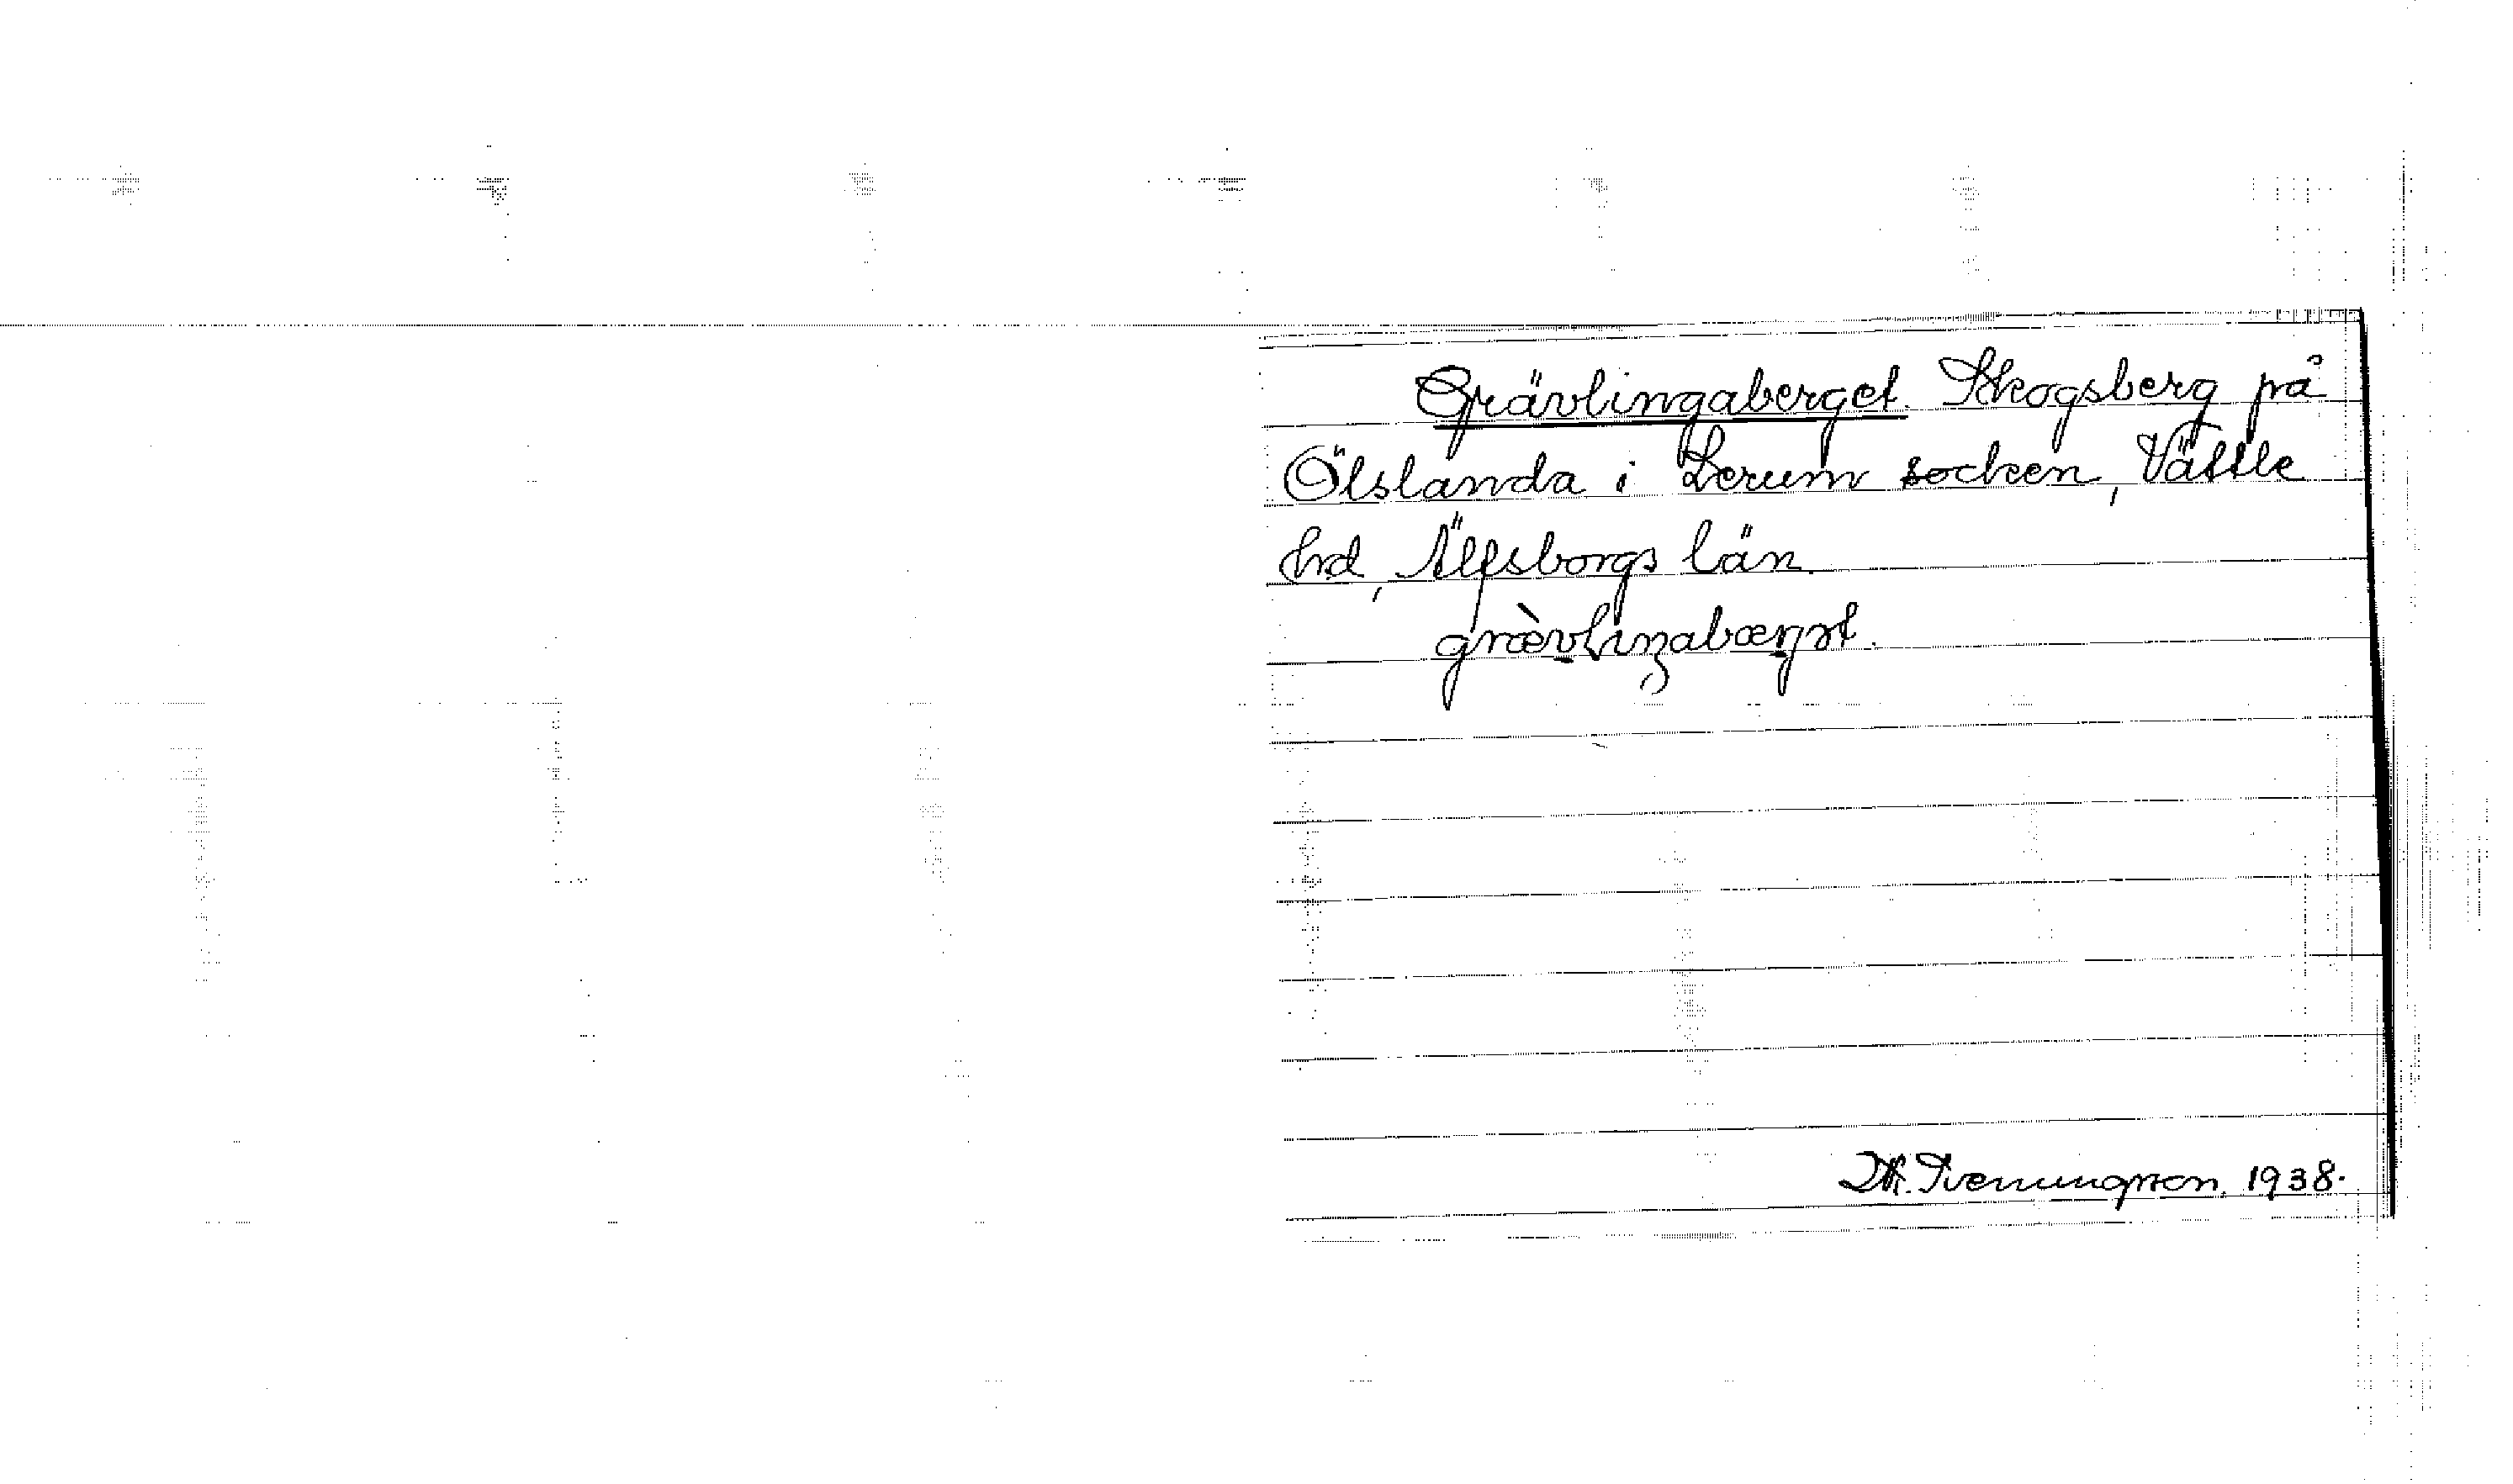 Grävlingaberget. Skogsberg på
Ölslanda i Lerum socken, Vättle
hd, Älfsborgs län.
grævlingabærjət.
Th. Svenungsson. 1938.